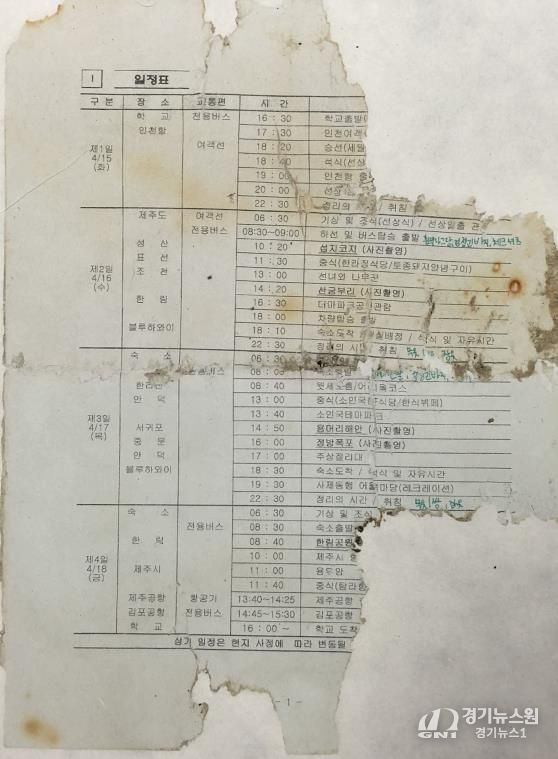 I 일정표
구 분 장 소 교통편 시 간
학 교 전용버스 16 : 30 학교출발
인천항 17 : 30 인천여객
제1일 여객선 18 : 20 승선(세월
4/15 18 : 40 석식(선상
(화) 19 : 00 인천항 출
20 : 00 선상
22 : 30 정리의 / 취침
제주도 여객선 06 : 30 기상 및 조식(선상식) / 선상일출 관
전용버스 08:30~09:00 하선 및 버스탑승 출발
성 산 10 : 20 섭지코지 (사진촬영)
제2일 표 선 11 : 30 중식(한라정식당/토종돼지양념구이)
4/16 조 천 13 : 00 선녀와 나무꾼
(수) 14 : 20 산굼부리 (사진촬영)
한 림 16 : 30 더마파크공연관람
18 : 00 차량탑승 출발
블루하와이 18 : 10 숙소도착 / 실배정 / 석식 및 자유시간
22 : 30 정리의 시간 / 취침
숙 소 06 : 30
08 : 00 숙소출발
한라산 08 : 40 윗세오름/어리목코스
안 덕 13 : 00 중식(소인국식당/한식뷔페)
제3일 13 : 40 소인국테마파크
4/17 서귀포 14 : 50 용머리해안 (사진촬영)
(목) 중 문 16 : 00 정방폭포 (사진촬영)
안 덕 17 : 00 주상절리대
블루하와이 18 : 30 숙소도착 / 석식 및 자유시간
19 : 30 사제동행 어울마당(레크레이션)
22 : 30 정리의 시간 / 취침
숙 소 06 : 30 기상 및 조식
전용버스 08 : 30 숙소출발
한 림 08 : 40 한림공원
제4일 10 : 00 제주시
4/18 제주시 11 : 00 용두암
(금) 11 : 40 중식(탐라
제주공항 항공기 13:40~14:25 제주공항
김포공항 전용버스 14:45~15:30 김포공항
학 교 16 : 00 ~ 학교 도착
상기 일정은 현지 사정에 따라 변동될
- 1 -
GN1 경기뉴스원
경기뉴스1